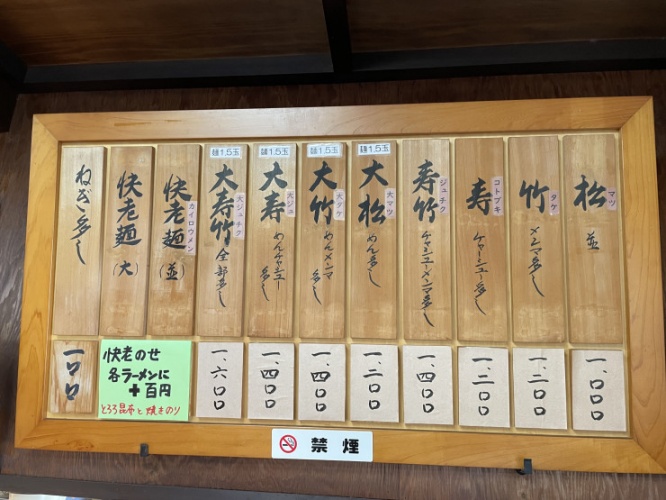 松
マツ
並
一、〇〇〇
竹
タケ
メンマ多し
一、二〇〇
寿
コトブキ
チャーシュー多し
一、二〇〇
寿竹
ジュチク
チャーシューメンマ多し
一、四〇〇
麺1.5玉
大松
大マツ
めん多し
一、二〇〇
麺1.5玉
大竹
大タケ
めんメンマ
多し
一、四〇〇
麺1.5玉
大寿
大ジュ
めんチャーシュー
多し
一、四〇〇
麺1.5玉
大寿竹
大ジュチク
全部多し
一、六〇〇
快老麺
カイロウメン
(並)
快老麺
(大)
快老のせ
各ラーメンに
+百円
とろろ昆布と焼きのり
ねぎ多し
一〇〇
禁煙